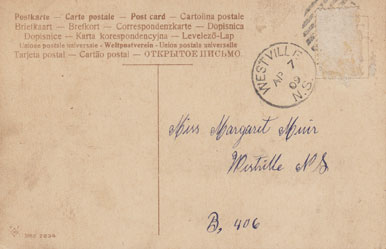 Postkarte — Carte postale — Post card — Cartolina postale
Briefkaart — Brefkort — Correspondenzkarte — Dopisnica
Dopisnice — Karta korespondencyjna — Levelező-Lap
Unione postale universale — Weltpostverein — Union postale universelle
Tarjeta postal — Cartão postal — ОТКРЫТОЕ ПИСЬМО.
WESTVILLE
AP 7
09
N.S.
Miss Margaret Muir
Westville N S
B, 406